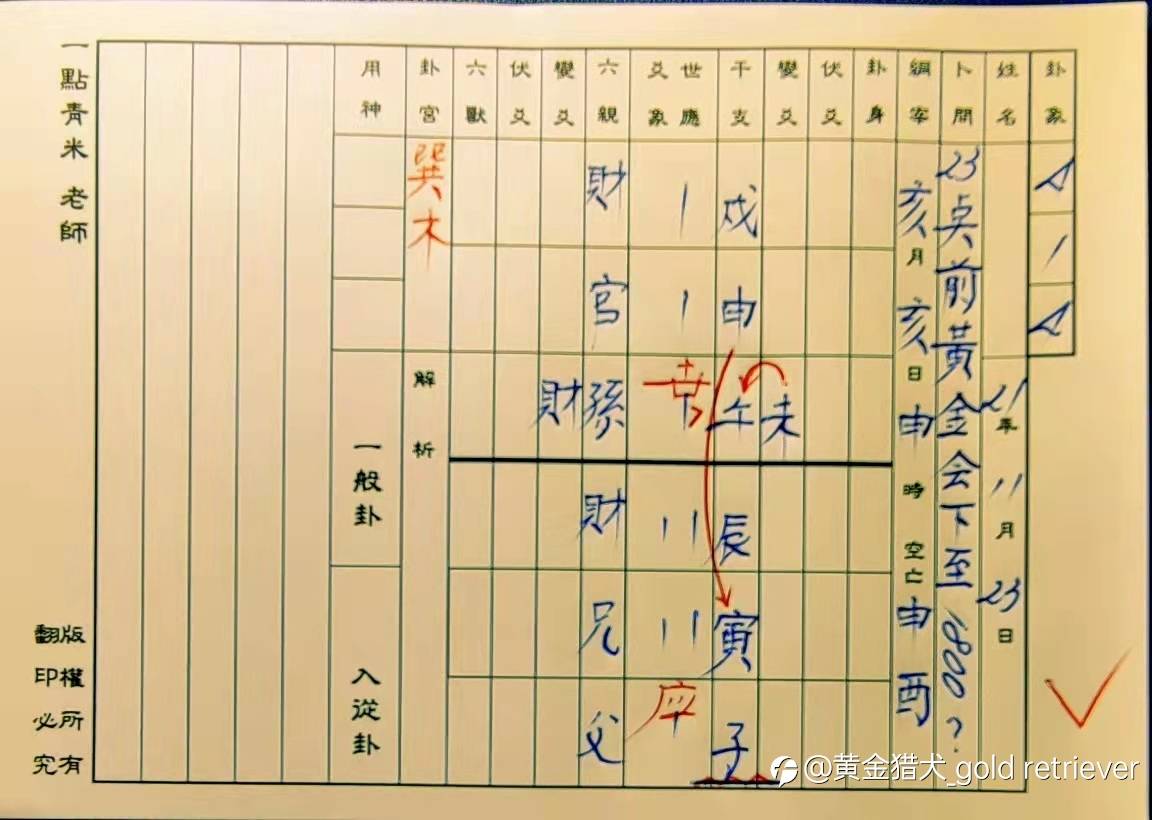 卦象
姓名
卜問 23点前黃金会下至1800？
21年11月23日
綱宰 亥月亥日申時空亡申酉
卦身
伏爻
變爻 未
干支 戌 申 午 辰 寅 子
世應 爻象
六親 財 官 孫 財 兄 父
變爻 財
伏爻
六獸
卦宮 巽木
解析
用神
一般卦
入從卦
一點青米 老師
翻版印權必所究有
@黄金猎犬_gold retriever